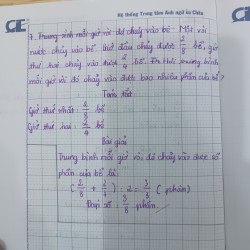 Hệ thống Trung tâm Anh ngữ Á Châu
7. Trung bình mỗi giờ vòi đó chảy vào bể. Một vòi
nước chảy vào bể. Giờ đầu chảy được 2/8 bể, giờ
thứ hai chảy vào được 2/4 bể. Hỏi trung bình
mỗi giờ vòi đó chảy vào được bao nhiêu phần của bể?
Tóm tắt
Giờ thứ nhất: 2/8 bể
Giờ thứ hai: 2/4 bể
Bài giải
Trung bình mỗi giờ vòi đó chảy vào được số
phần của bể là:
(2/8 + 2/4) : 2 = 3/8 (phần)
Đáp số: 3/8 phần.